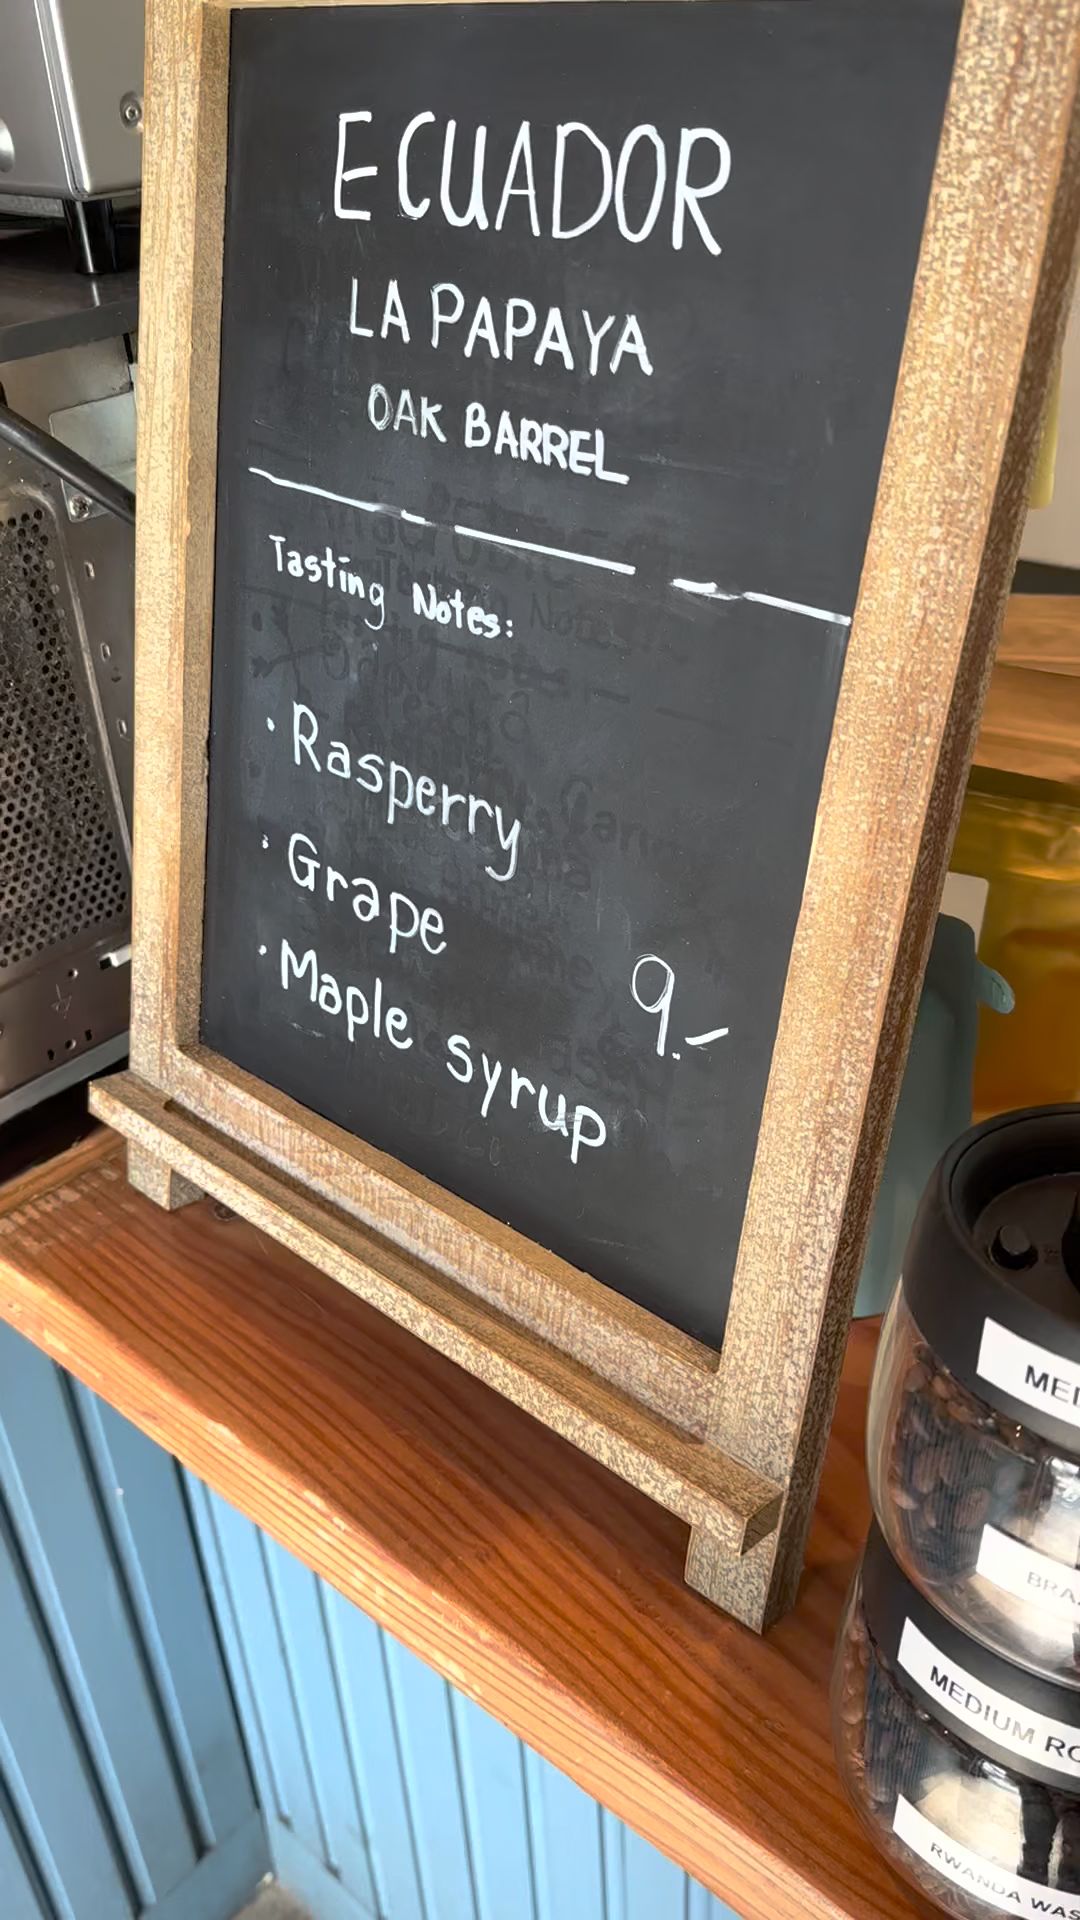 ECUADOR
LA PAPAYA
OAK BARREL
Tasting Notes:
· Rasperry
· Grape
· Maple syrup
9.-
MED
BRA
MEDIUM RO
RWANDA WAS